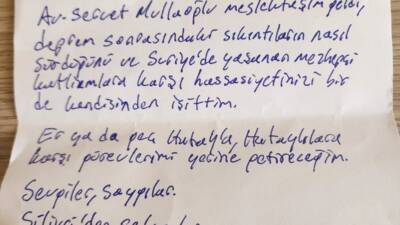 Av. Servet Mullaoğlu meslektaşım geldi,
deprem sonrasındaki sıkıntıların nasıl
sürdüğünü ve Suriye'de yaşanan mezhepçi
katliamlara karşı hassasiyetinizi bir
de kendisinden işittim.
Er ya da geç Hatay'a, Hataylılara
karşı görevlerimi yerine getireceğim.
Sevgiler, Saygılar.
Silivri'den